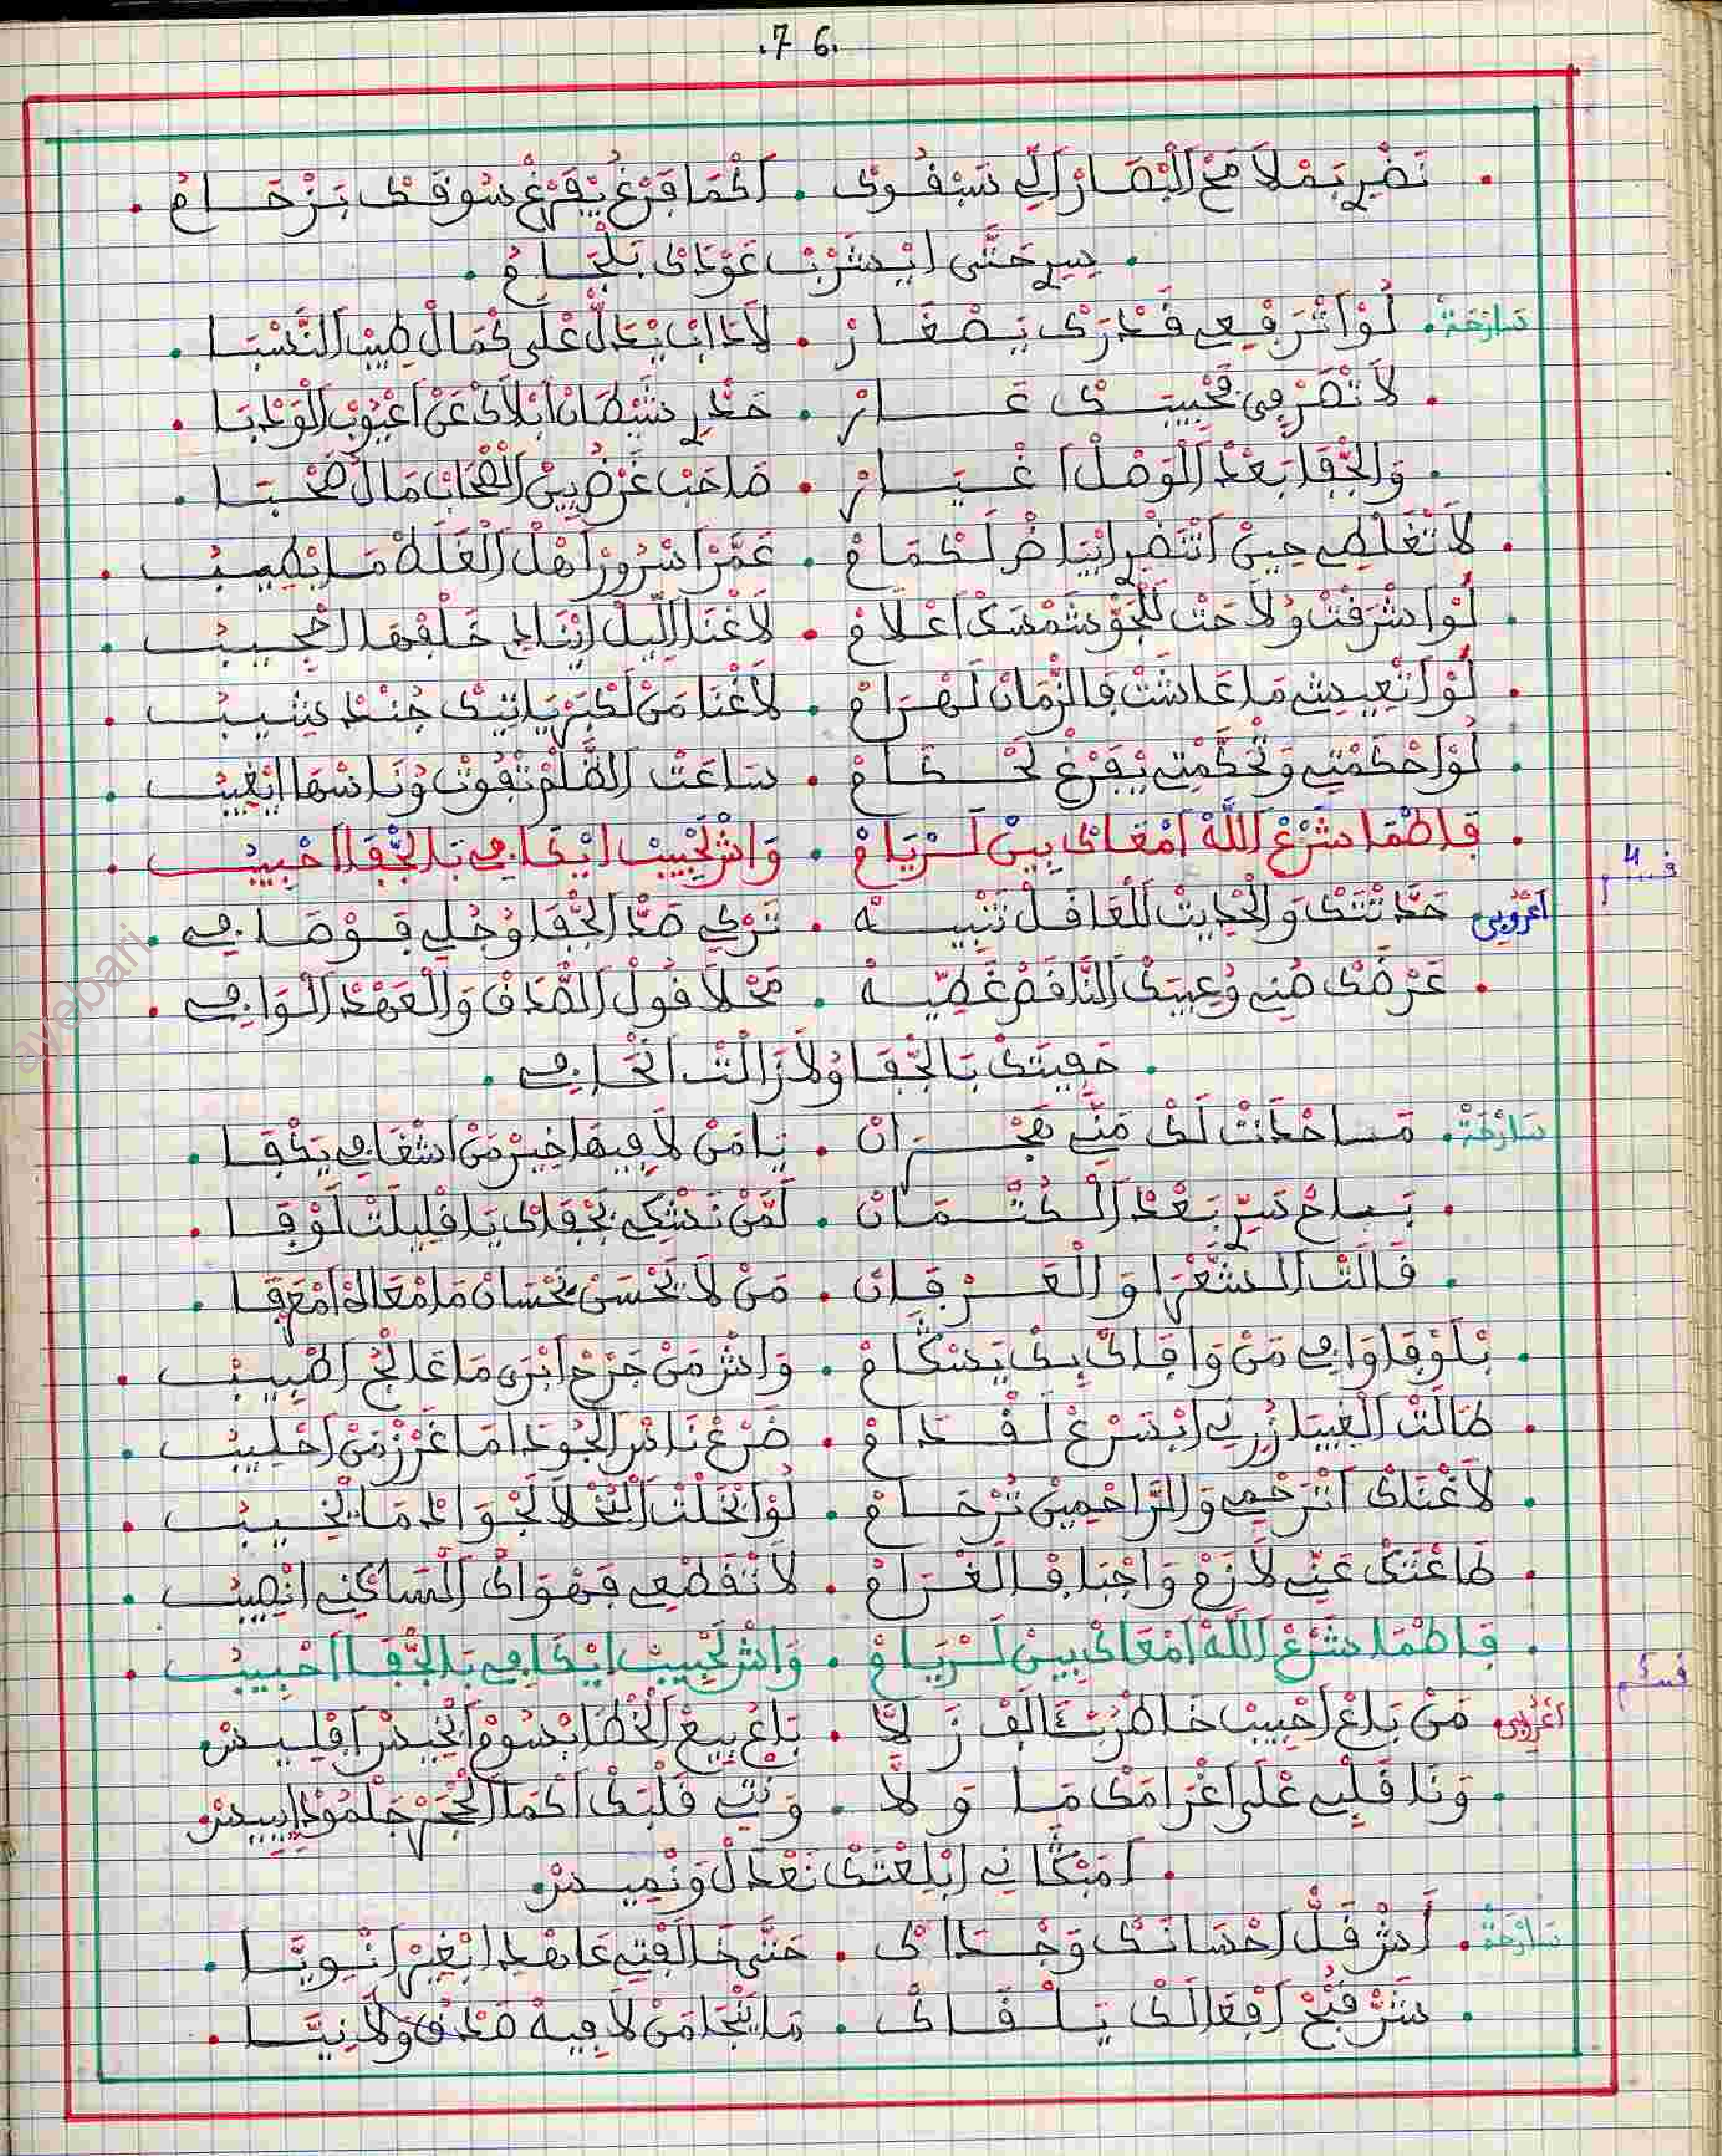 .7 6.
. نضير بملامح البصار الي تسفوى . اكما فرغ يفرغ سوقك بزحام .
. يسير حتى ايشرب عودك بلجام .
سارحة . لوا ترفيع قدرك يصغار . لاداب يدل على كمال طيب النسبا .
. لا تضر في محبيتك عار . خدير شيطان ابلاك عن اعيوب الوغبا .
. والجفا بعد الوصل اغيار . صاحب غرضين القحاب مال صحبا .
. لا تغلطي حين اتنضر ابياض لكمام . عمر اسرور اهل الغلط ما يطيب .
. لوا شرفت ولاحت للجو شمسك اعلام . لا غنا الليل ايتابع خلفها امجيب .
. لوا تعيش ما عاشت فالزمان لهرام . لا غنا من لكبر ياتيك جند يشيب .
. لوا حكمتي وتحكمتي يفرغ لحكام . ساعت الظلم تفوت وناسها اتغيب .
. فاطما شرع الله امعاك بين لريام . واش لحبيب ايكافي بالجفا احبيب .
قسم 4
اعروبي حدثتك والحديث للغافل تنبيه . تركي ضد الجفا وجلي قوصافي .
. عرضك صني وعيبك الناقص غطيه . محلا قول الصدق والعهد الوافي .
. حفيتك بالجفا ولا زالت اتحافي .
سارحة . مساخذت لك مني هجران . يا من لا فيها خير من اشفافي يكفا .
. باح سري بعد الكتمان . لمن نشكي بجفاك يا قليلت لوفا .
. قالت الشعرا والعرفان . من لا يحسن بحسان ما امعاه امعرفا .
. بلوفا وافي من وافاك بك يسكام . واش من جرح ابرى ما عالج اطبيب .
. طالت الغيبا زرني ابسرع لقدام . ضرع ناس الجود اما غزر من احليب .
. لا غناك اترحمي والراحمين ترحام . لوا بخلت البخلا لجواد ما يخيب .
. طاعتك عني لازم واجبا فالغرام . لا تقطعي فهواك الساكني انصيب .
. فاطما شرع الله امعاك بين لريام . واش لحبيب ايكافي بالجفا احبيب .
قسم 5
اعروبي من باع احبيب خاطر بثالف زلا . باع بيع الخطا بسوم ابخيس افليس
. ونا قلبي على اغرامك ما ولا . ونتي قلبك اكما الحجر جلمود ايبيس
. امبكاني ابلعتك نعدل ونميس
سارحة . اش قل احسانك وجداك . حتى خالفتي عاهد ابغير انويا .
. شر قبح افعالك يلقاك . ما ينجا من لا فيه صدق ولا نيا .
ayebari